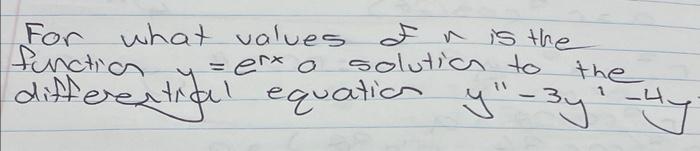 For what values of r is the
function y = e^rx a solution to the
differential equation y'' - 3y' - 4y